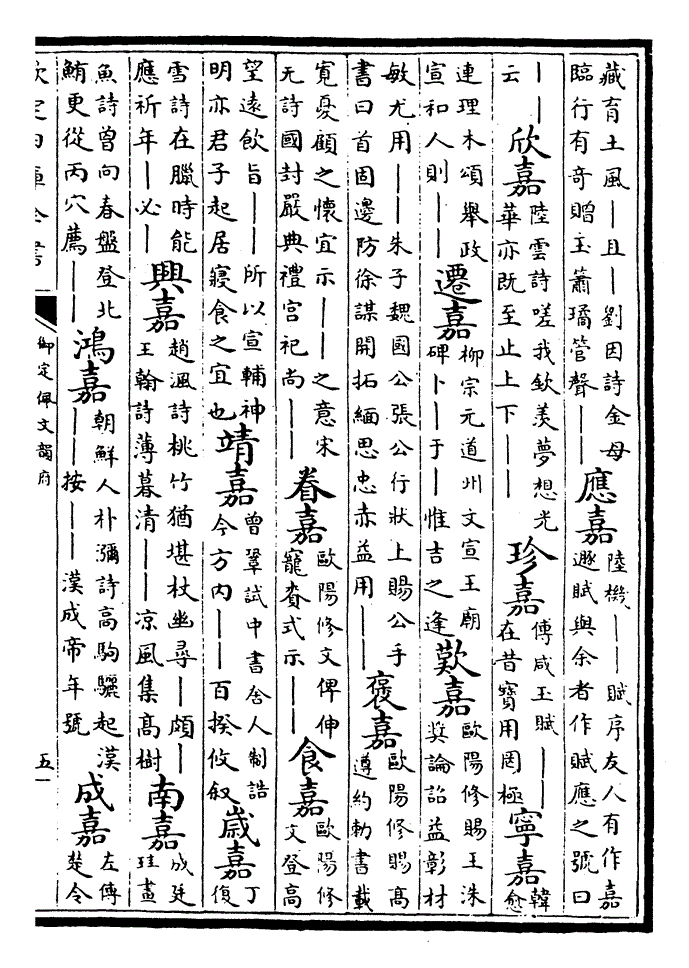 藏育土風丨且丨劉因詩金母臨行有奇贈玉簫璚管聲丨丨應嘉陸機丨丨賦序友人有作嘉遯賦與余者作賦應之號曰
丨丨云欣嘉陸雲詩嗟我欽羨夢想光華亦既至止上下丨丨珍嘉傅咸玉賦丨丨在昔寳用罔極寧嘉韓愈
連理木頌舉政宣和人則丨丨遷嘉柳宗元道州文宣王廟碑卜丨于丨惟吉之逢歎嘉歐陽修賜王洙奬論詔益彰材
敏尤用丨丨朱子魏國公張公行狀上賜公手書曰首固邊防徐謀開拓緬思忠赤益用丨丨褒嘉歐陽修賜高遵約勅書載
寛憂顧之懷宜示丨丨之意宋无詩國封嚴典禮宫祀尚丨丨眷嘉歐陽修文俾伸寵賚式示丨丨食嘉歐陽修文登高
望遠飲旨丨丨所以宣輔神明亦君子起居寢食之宜也靖嘉曾鞏試中書舍人制誥今方内丨丨百揆攸叙嵗嘉丁復
雪詩在臘時能應祈年丨必丨興嘉趙渢詩桃竹猶堪杖幽尋丨頗丨王翰詩薄暮清丨丨凉風集髙樹南嘉成廷珪畫
魚詩曾向春盤登北鮪更從丙穴薦丨丨鴻嘉朝鮮人朴瀰詩高駒驪起漢丨丨按丨丨漢成帝年號成嘉左傳楚令
欽定四庫全書
御定佩文韻府
五一